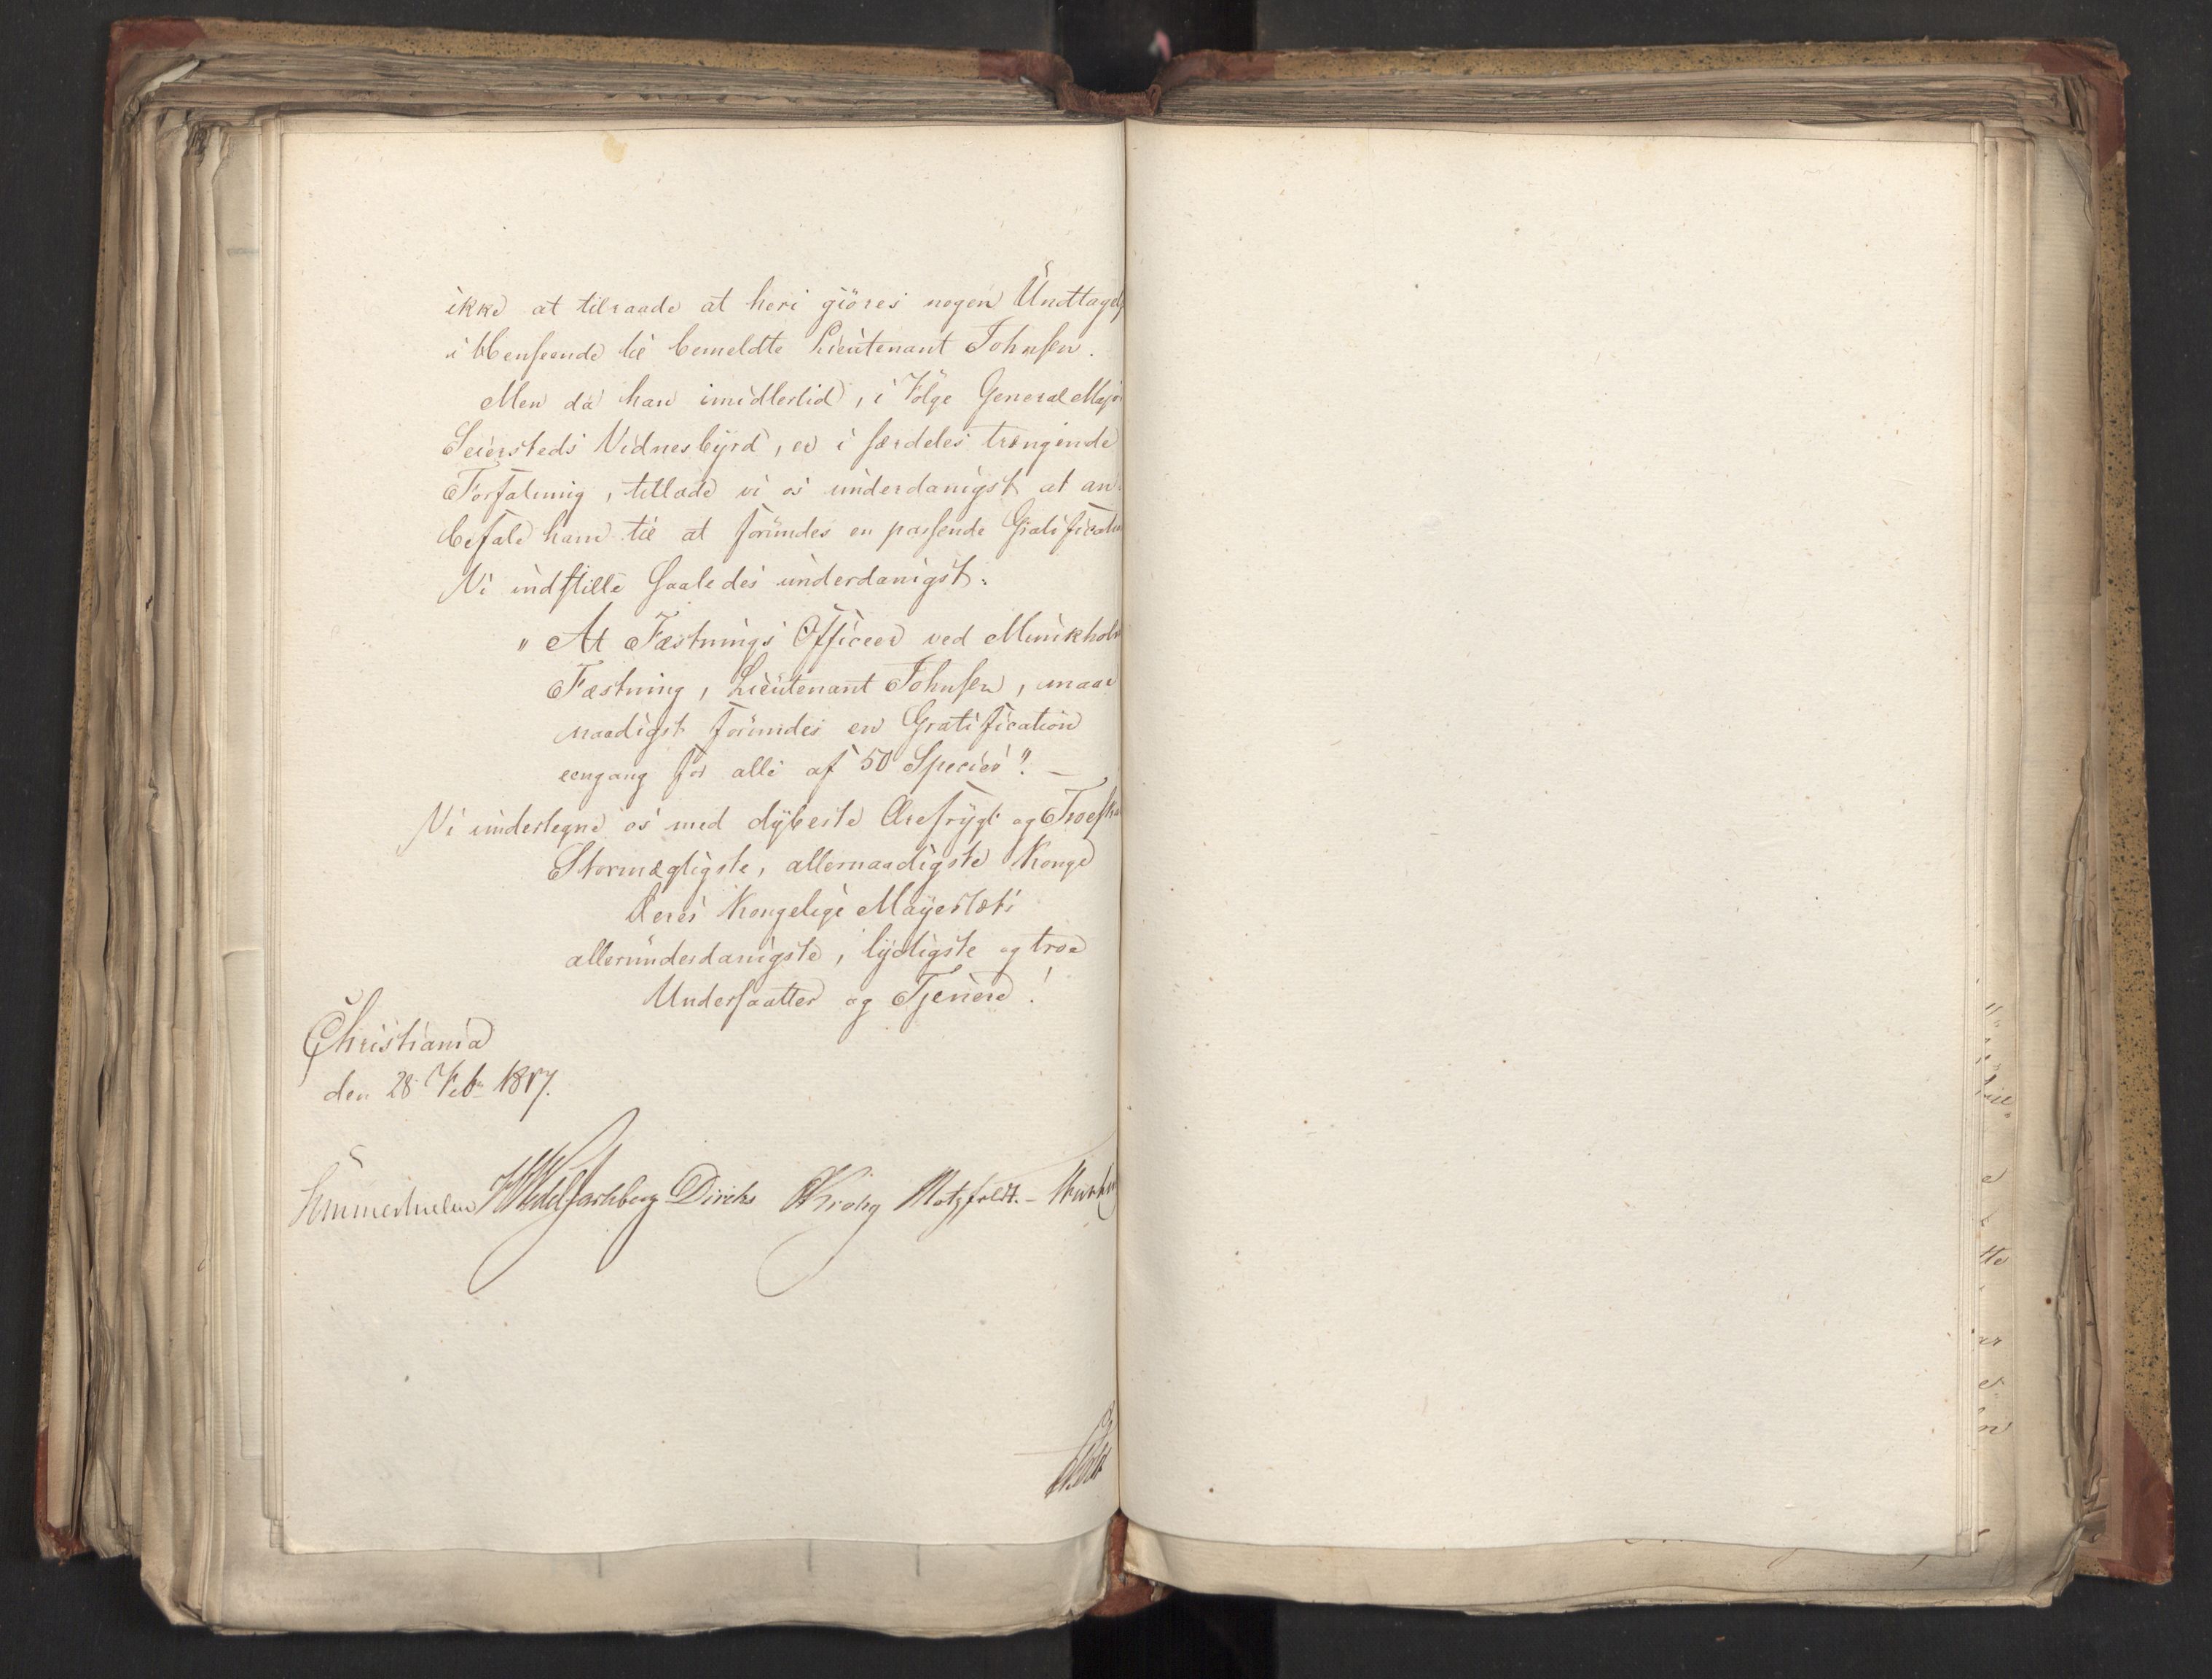 ikke at tilraade at heri giöres nogen Undtagels
i Henseende til bemeldte Lieutenant Johnsen.
Men da han imidlertid, i Følge General Major
Seiersteds Vidnesbyrd, er i særdeles trængende
Forfatning, tillade vi os underdanigst at an-
befale ham til at forundes en passende Gratification
Vi indstille saaledes underdanigst:
" At Fæstnings Officeer ved Munkholm
Fæstning, Lieutenant Johnsen, maae
naadigst forundes en Gratification
eengang for alle af 50 Species". —
Vi undertegne os med dybeste Ærefrygt og Troeskab
Stormægtigste, allernaadigste Konge
Deres Kongelige Mayestæts
allerunderdanigste, lydigste og troe
Undersaatter og Tjenere!
Christiania
den 28 Febr 1817.
Sommerhielm HWedel Jarlsberg Diriks CKrohg Motzfeldt. -
Holst